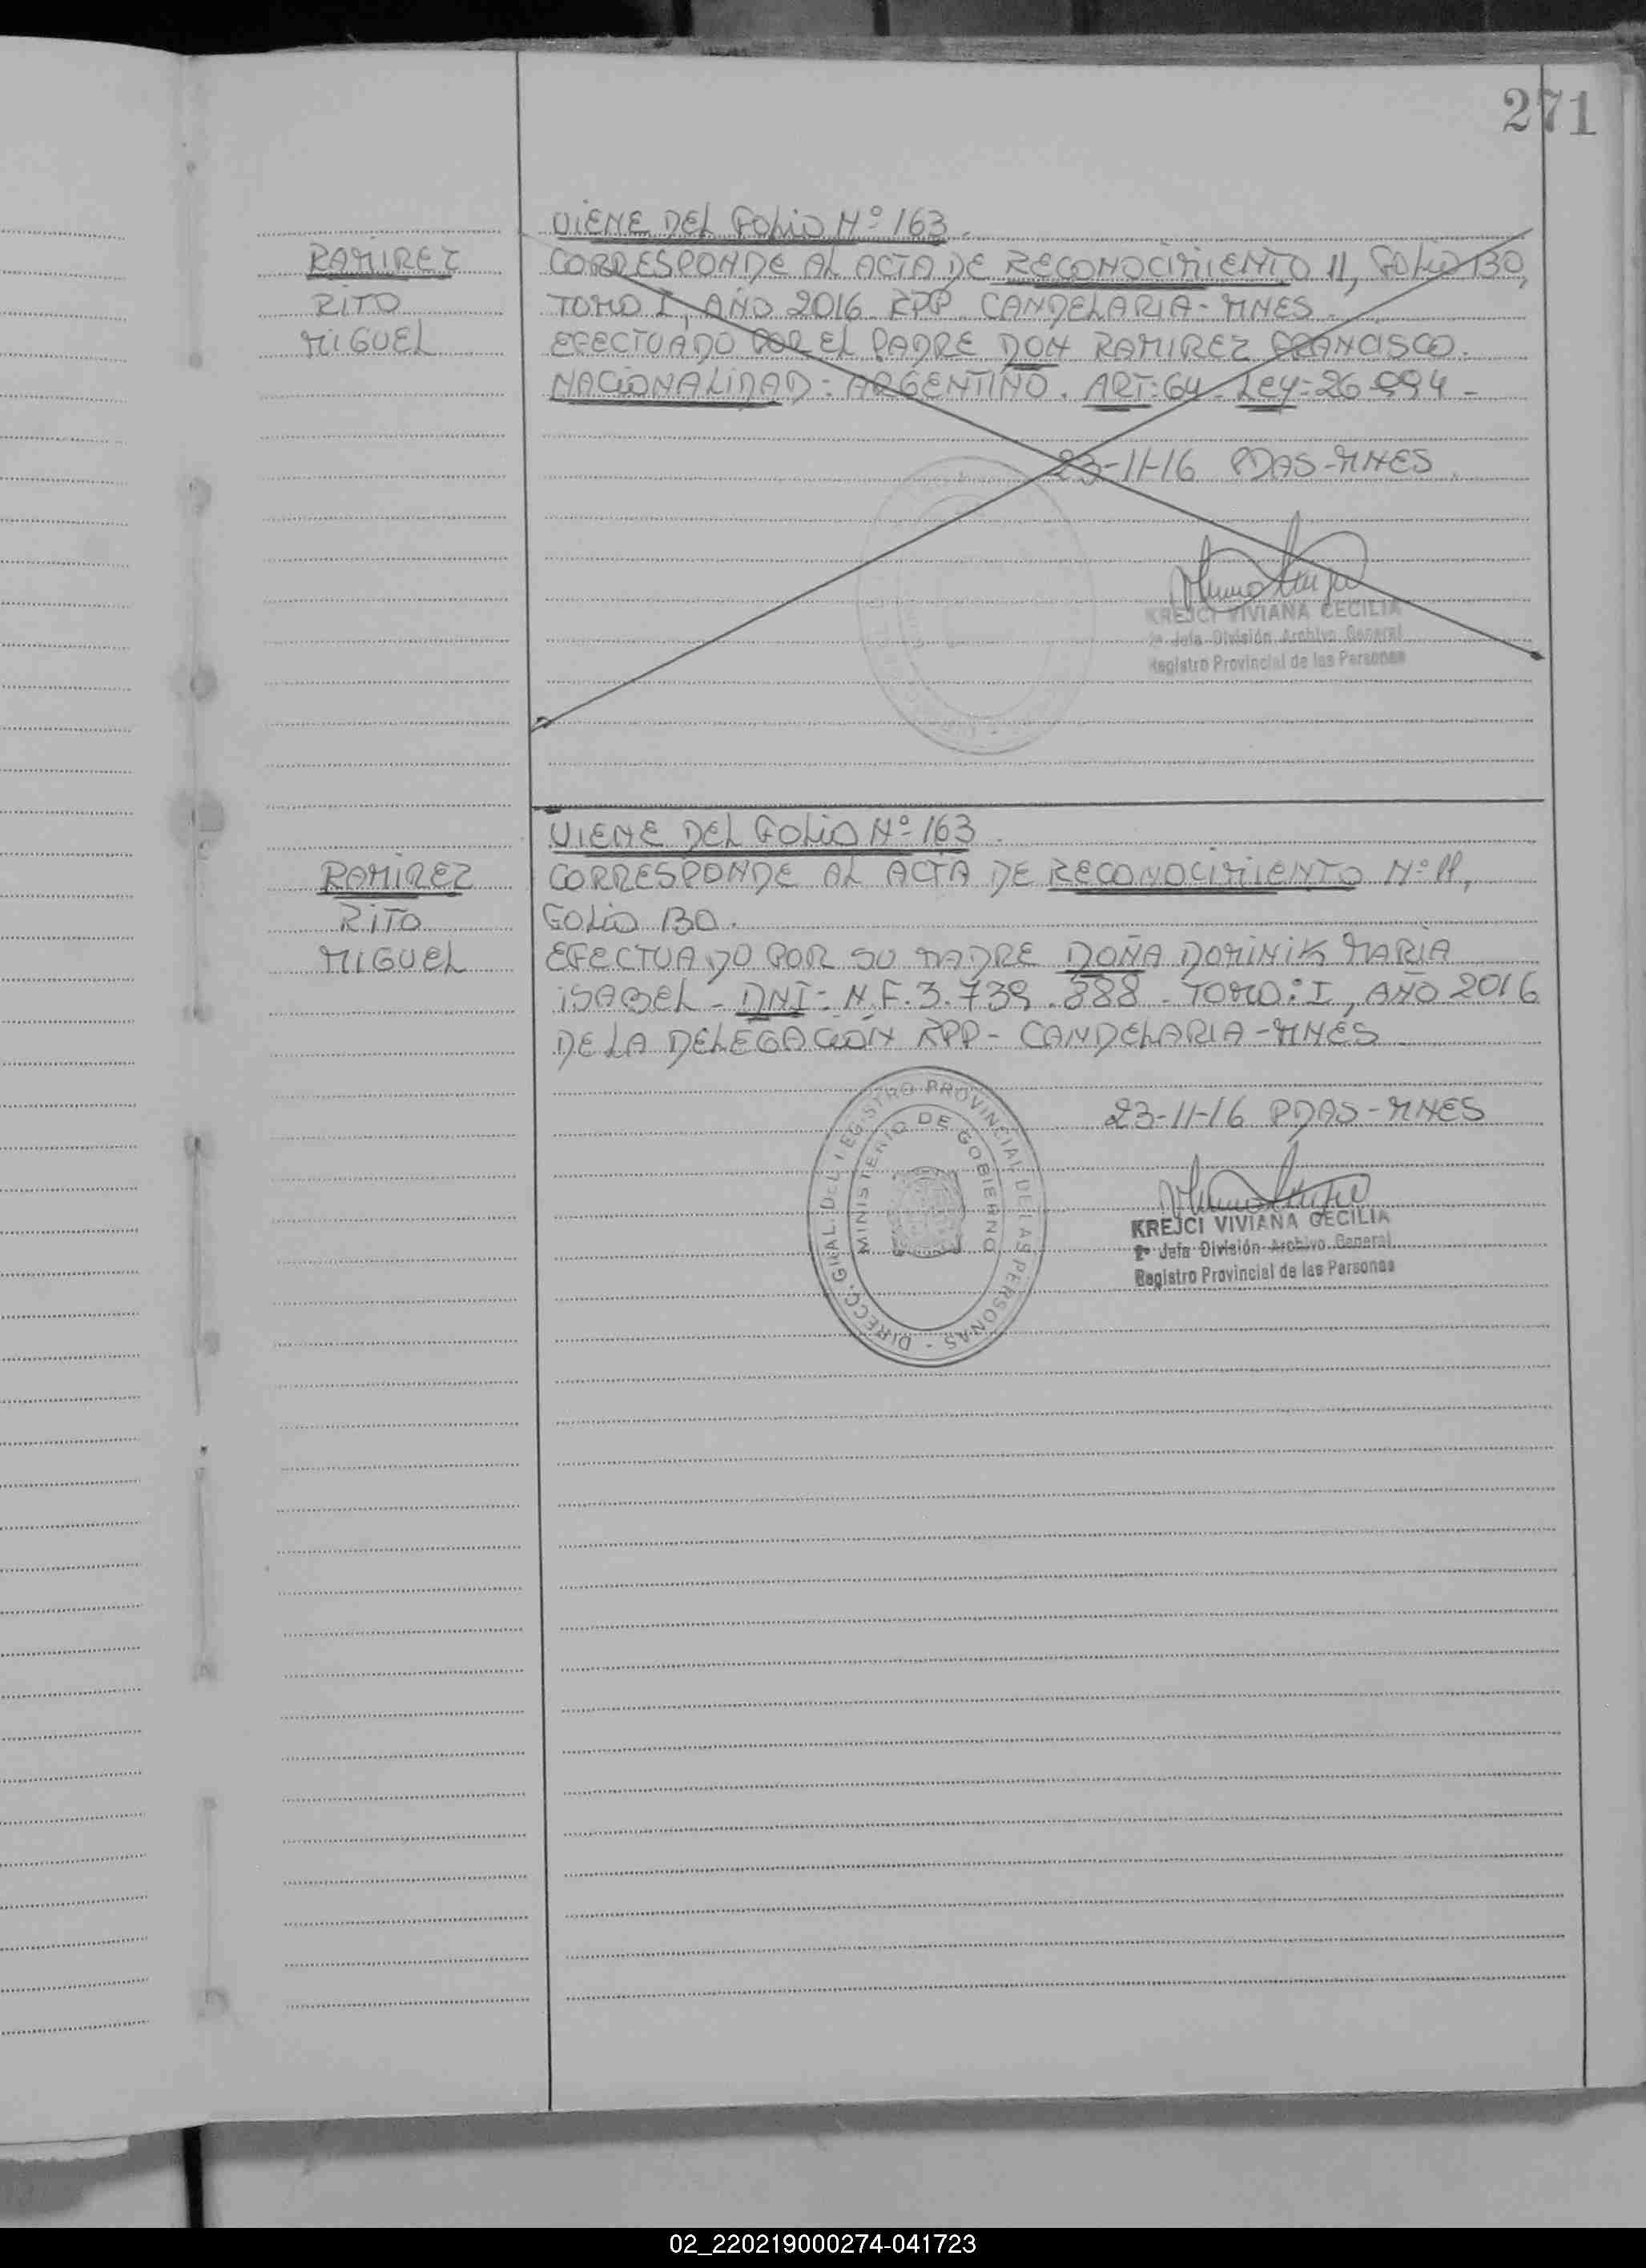 271
VIENE DEL FOLIO Nº 163.
RAMIREZ
RITO
MIGUEL
CORRESPONDE AL ACTA DE RECONOCIMIENTO 11, FOLIO 130,
TOMO I, AÑO 2016. RPP. CANDELARIA - MNES.
EFECTUADO POR EL PADRE DON RAMIREZ FRANCISCO.
NACIONALIDAD: ARGENTINO. ART: 64 - LEY = 26.994 -
23-11-16 PDAS-MNES.
KREJCI VIVIANA CECILIA
2º Jefa División Archivo General
Registro Provincial de las Personas
VIENE DEL FOLIO Nº 163.
RAMIREZ
RITO
MIGUEL
CORRESPONDE AL ACTA DE RECONOCIMIENTO Nº 11,
FOLIO 130.
EFECTUADO POR SU MADRE DOÑA DOMINIK MARIA
ISABEL - DNI: N.F. 3.739.888 - TOMO: I, AÑO 2016
DE LA DELEGACION RPP - CANDELARIA - MNES
23-11-16 PDAS - MNES
DIRECC. GRAL. DEL REGISTRO PROVINCIAL DE LAS PERSONAS -
MINISTERIO DE GOBIERNO
KREJCI VIVIANA CECILIA
2º Jefa División Archivo General
Registro Provincial de las Personas
02_220219000274-041723